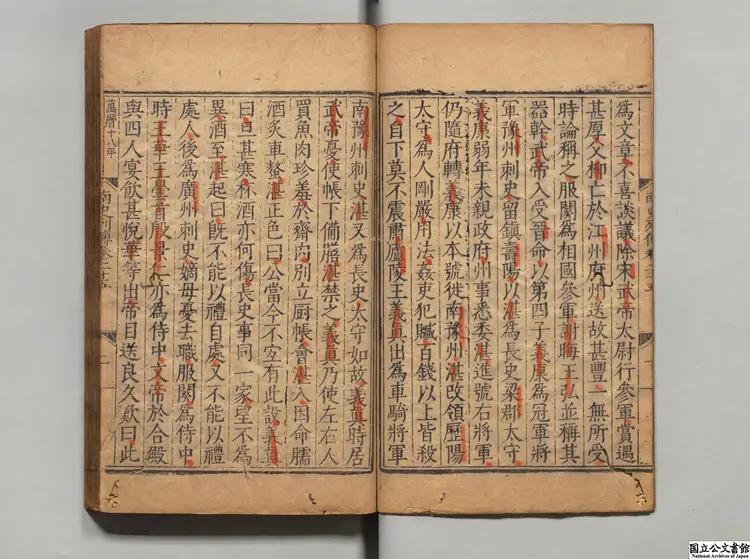 南史列傳卷二十五
爲文章不喜談議除宋武帝太尉行參軍賞遇
甚厚父柳亡於江州府州送故甚豐一無所受
時論稱之服闋爲相國參軍謝晦王弘並稱其
器幹武帝入受晉命以第四子義康爲冠軍將
軍豫州刺史留鎮壽陽以湛爲長史梁郡太守
義康弱年未親政府州事悉委湛進號右將軍
仍隨府轉義康以本號徙南豫州湛改領歷陽
太守爲人剛嚴用法姦吏犯贓百錢以上皆殺
之自下莫不震肅廬陵王義眞出爲車騎將軍
南豫州刺史湛又爲長史太守如故義眞時居
武帝憂使帳下備膳湛禁之義眞乃使左右人
買魚肉珍羞於齋內別立厨帳會湛入因命臑
酒炙車螯湛正色曰公當今不宜有此設義眞
曰旦甚寒杯酒亦何傷長史事同一家望不爲
異酒至湛起曰旣不能以禮自處又不能以禮
處人後爲廣州刺史嫡母憂去職服闋爲侍中
時王華王曇首殷景仁亦爲侍中文帝於合殿
與四人宴飲甚悅華等出帝目送良久歎曰此
萬曆十八年
南史列傳卷二十五
国立公文書館
National Archives of Japan